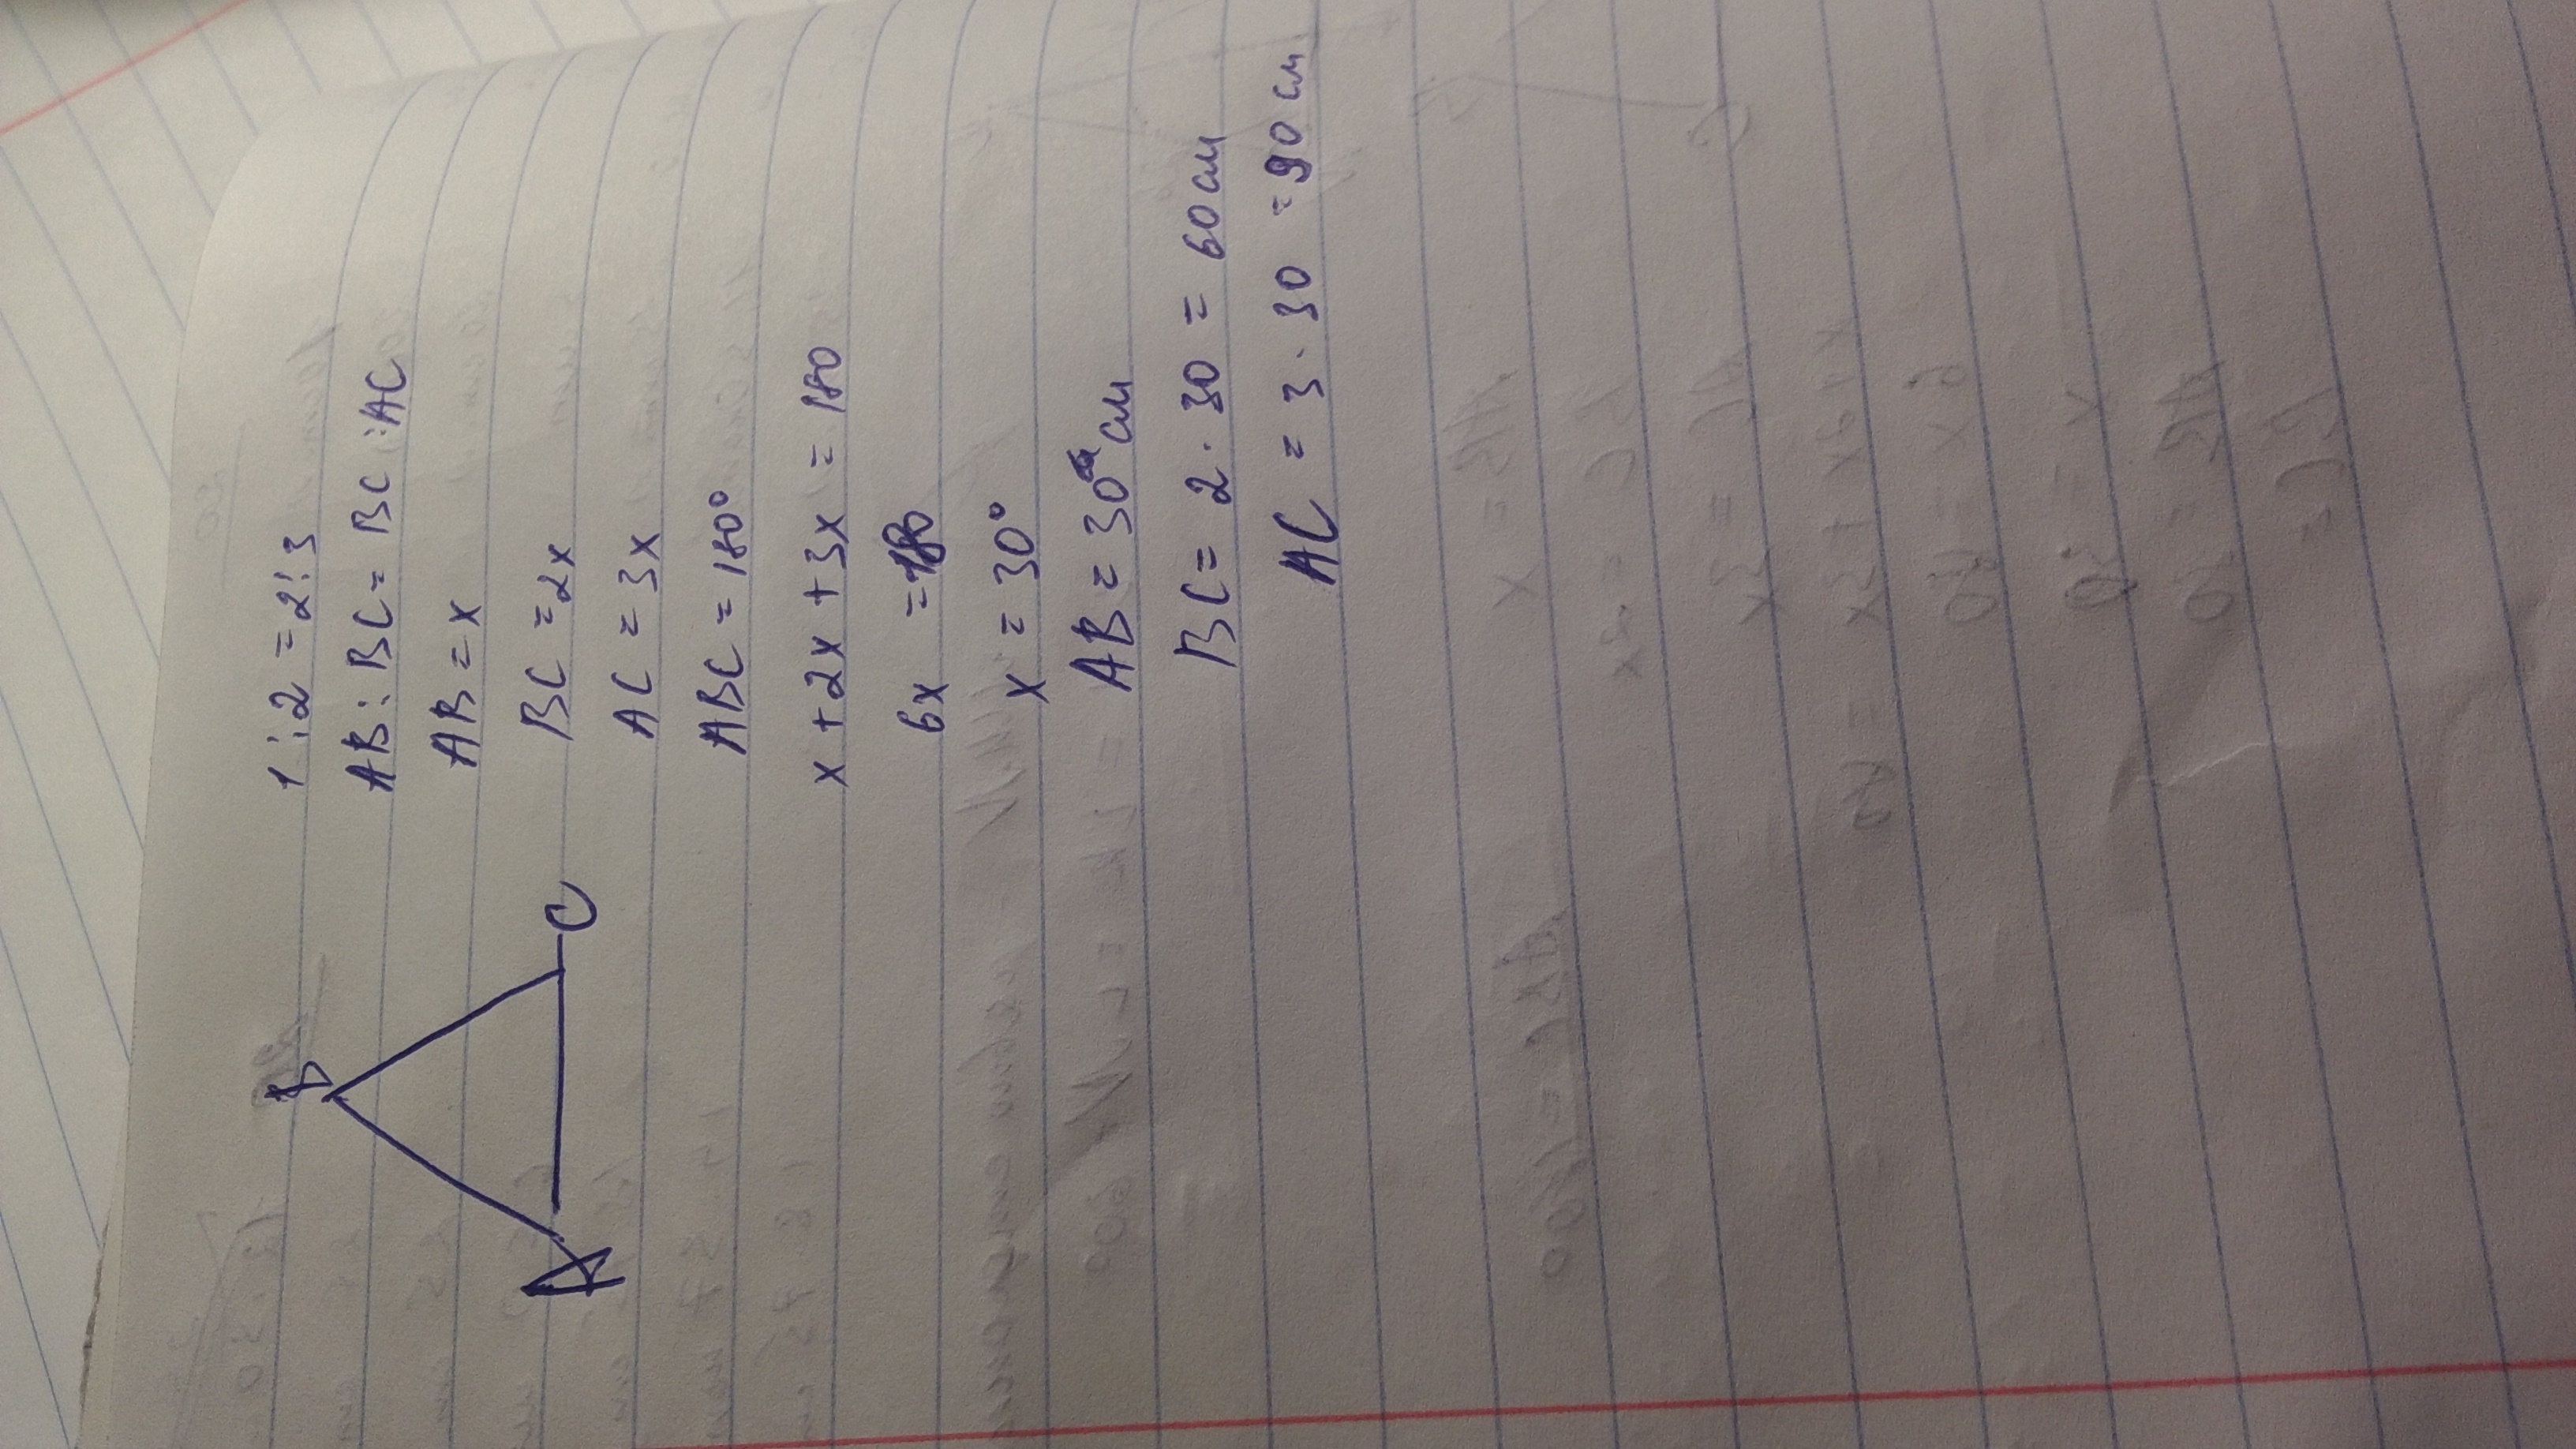 B
A
C
1:2 = 2:3
AB:BC = BC:AC
AB = x
BC = 2x
AC = 3x
ABC = 180°
x + 2x + 3x = 180
6x = 180
x = 30°
AB = 30 см
BC = 2 · 30 = 60 см
AC = 3 · 30 = 90 см